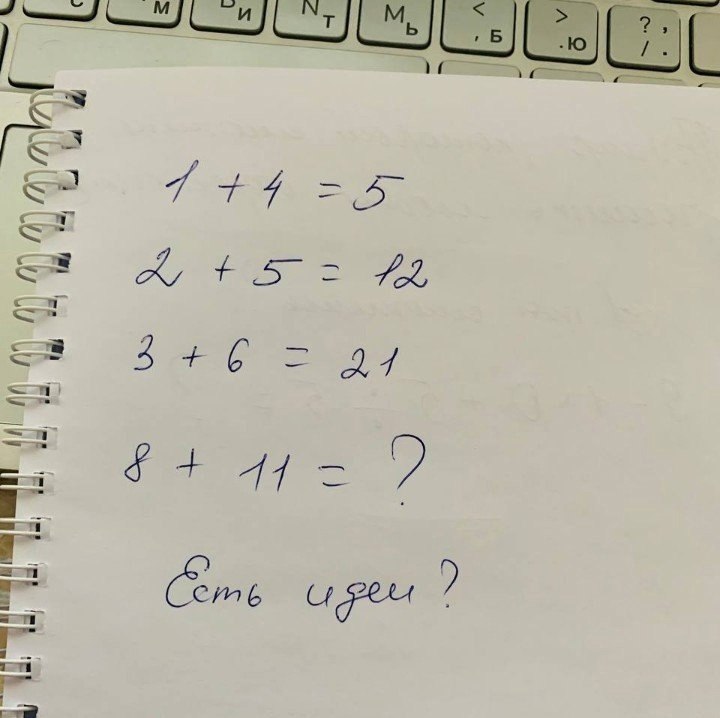 С М И Т Ь Б Ю
N M < > ? ,
, . / .
1 + 4 = 5
2 + 5 = 12
3 + 6 = 21
8 + 11 = ?
Есть идеи?